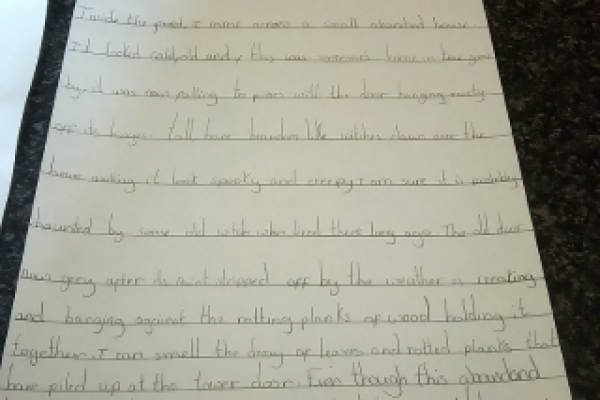 Inside the forest, I came across a small abandoned house.
It looked old and this was someone's home in time gone
by it was now falling to pieces with the door hanging
off its hinges. Tall bare branches like witches claws over the
house making it look spooky and creepy I am sure it is probably
haunted by some old witch who lived there long ago. The old door
now grey after its paint stripped off by the weather is creaking
and banging against the rotting planks of wood holding it
together. I can smell the decay of leaves and rotted planks that
have piled up at the tower door. Even though this abandond